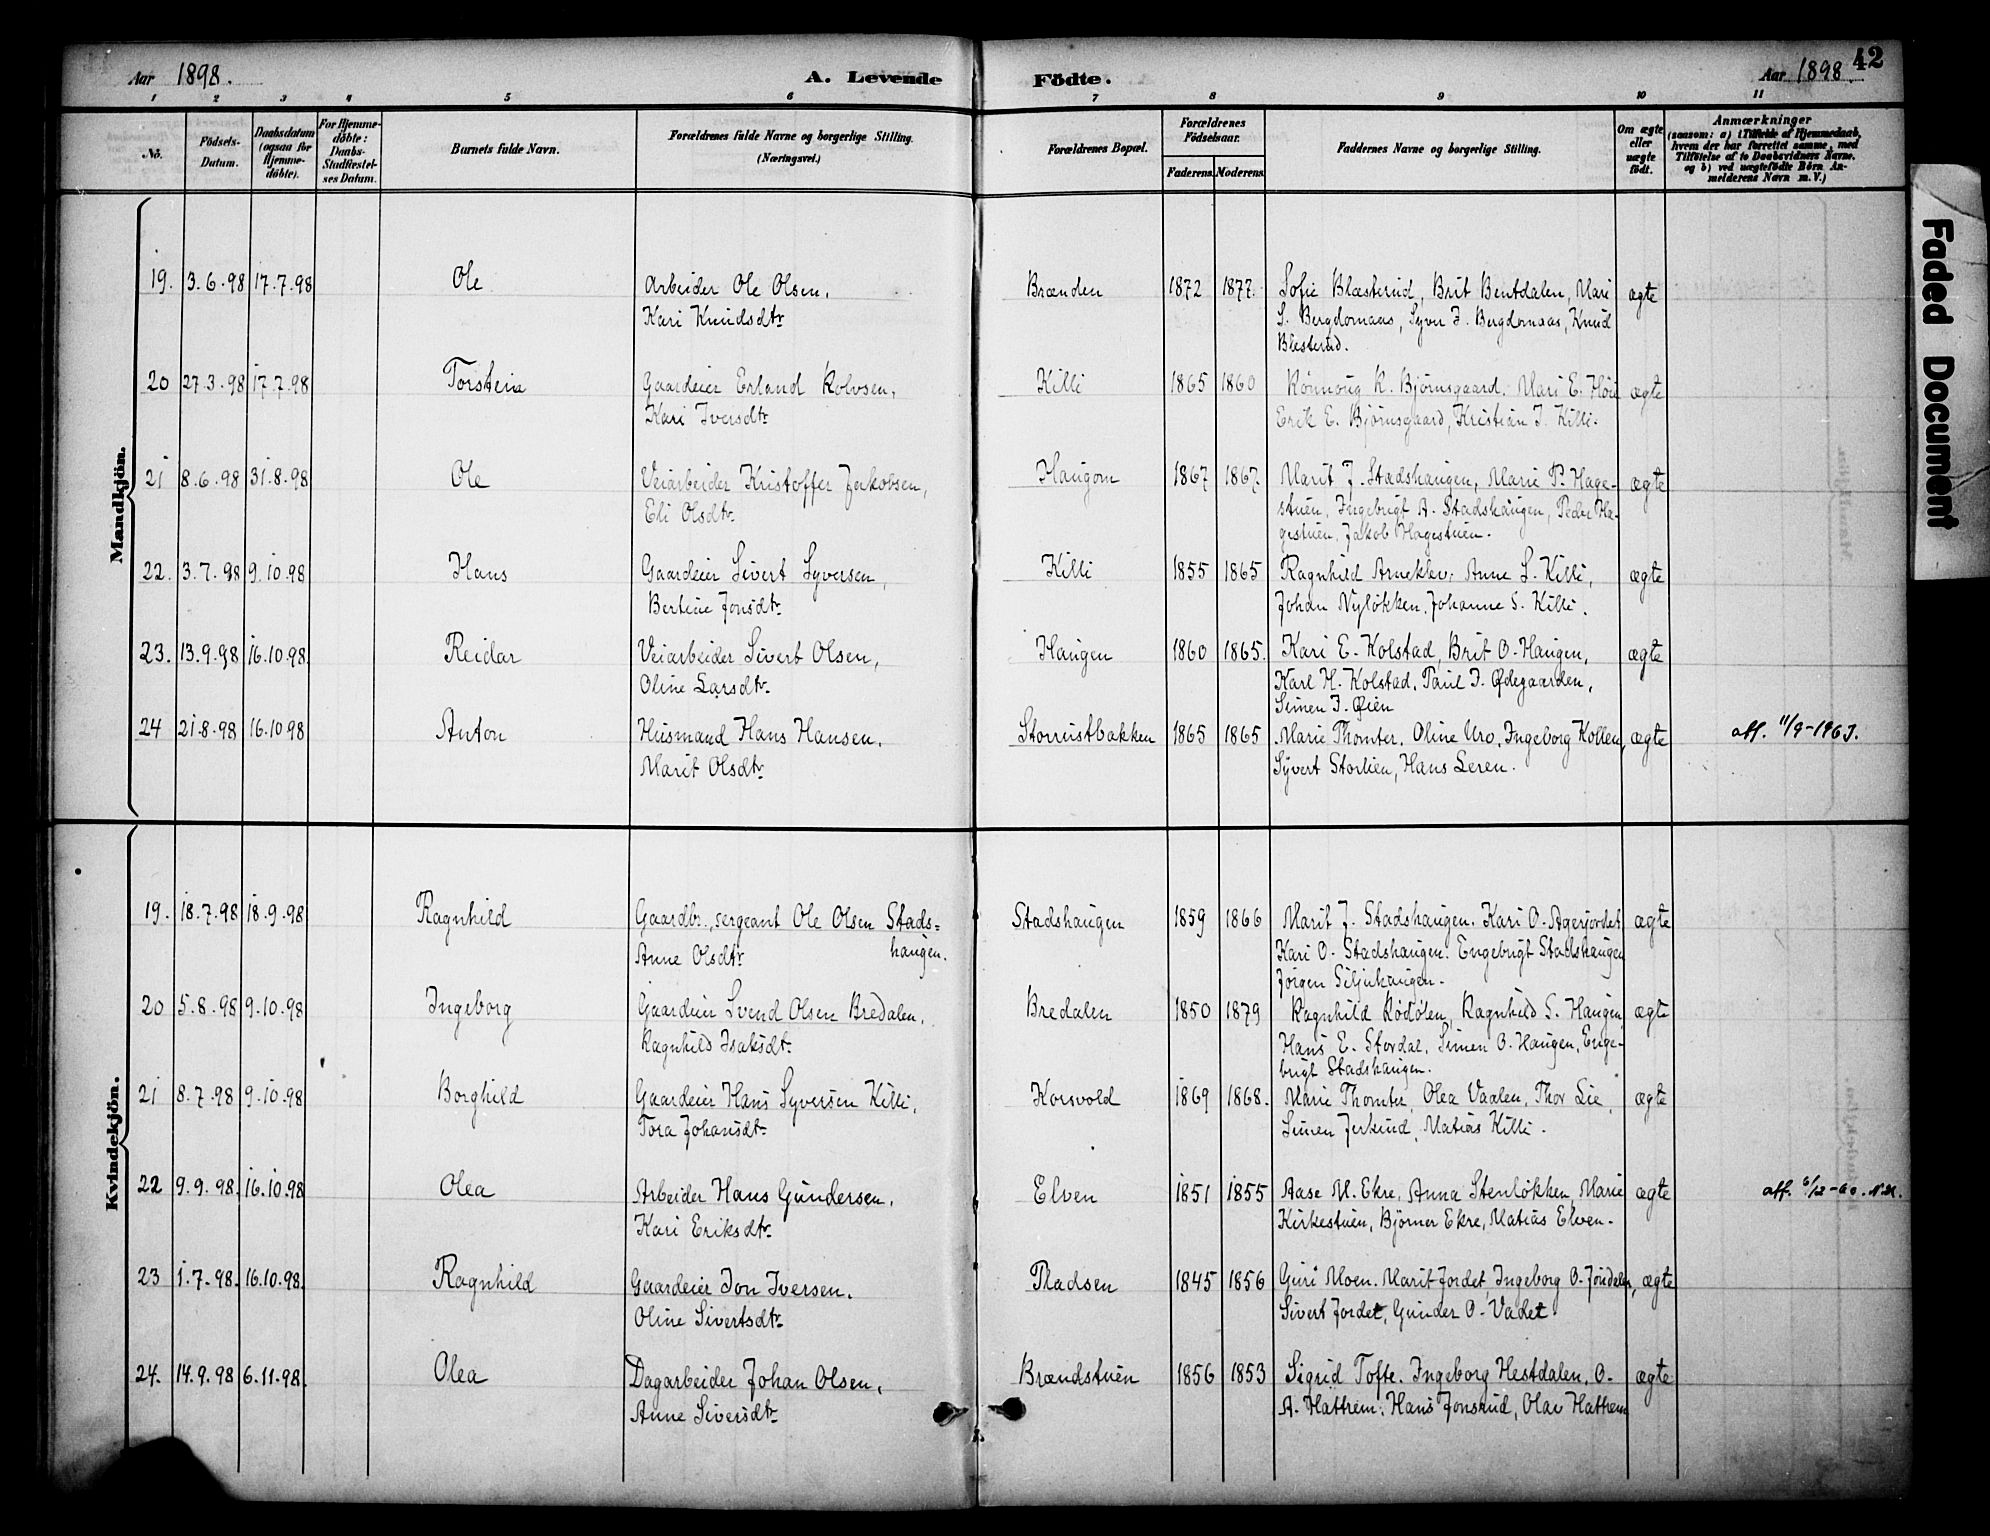 Aar 1898.
A. Levende
Födte.
Aar 1898.
42
1 2 3 4 5 6 7 8 9 10 11
No.
Födsels-Datum.
Daabsdatum (ogsaa for Hjemme-döbte).
For Hjemme-döbte: Daabs-Stadfæstel-ses Datum.
Barnets fulde Navn.
Forældrenes fulde Navne og borgerlige Stilling.
(Næringsvei.)
Forældrenes Bopæl.
Forældrenes Födselsaar.
Faderens. Moderens.
Faddernes Navne og borgerlige Stilling.
Om ægte eller uægte födt.
Anmærkninger
(saasom: a) i Tilfælde af Hjemmedaab, hvem der har forrettet samme, med Tilföielse af to Daabsvidners Navne. og b) ved uægtefödte Börn An-melderens Navn m. V.)
Faded Document
Mandkjön.
19. 3.6.98 17.7.98 Ole Arbeider Ole Olsen, Brænden 1872 1877. Sofie Blæsterud, Brit Bentdalen, Mari ægte
Kari Knudsdtr. S. Bergdomaas, Syver J. Bergdomaas, Knud
Blesterud.
20 27.3.98 17.7.98 Torstein Gaardeier Erland Rolvsen, Killi 1865 1860 Rönnoug K. Björnsgaard. Mari E. Høie ægte
Kari Iversdtr. Erik E. Björnsgaard, Kristian I. Killi.
21 8.6.98 31.8.98 Ole Veiarbeider Kristoffer Jakobsen, Haugom 1867 1867. Marit J. Stadshaugen, Marie P. Hage- ægte
Eli Olsdtr. stuen, Ingebrigt A. Stadshaugen, Peder Ha-
gestuen, Jakob Hagestuen.
22. 3.7.98 9.10.98 Hans Gaardeier Sivert Syversen, Killi 1855 1865 Ragnhild Arneklev. Anne S. Killi, ægte
Bertine Jonsdtr. Johan Nyløkken, Johanne S. Killi.
23. 13.9.98 16.10.98. Reidar Veiarbeider Sivert Olsen, Haugen 1860 1865. Kari E. Kolstad, Brit O. Haugen, ægte
Oline Larsdtr. Karl H. Kolstad, Paul J. Ødegaarden,
Simen J. Øien
24 21.8.98 16.10.98 Anton Husmand Hans Hansen, Storrustbakken 1865 1865 Marie Thomter, Oline Uro, Ingeborg Kollen, ægte aff. 11/9-1963.
Marit Olsdtr. Syvert Storlien, Hans Leren.
Kvindekjön.
19. 18.7.98 18.9.98 Ragnhild Gaardbr., sergeant Ole Olsen Stads= Stadshaugen 1859 1866 Marit J. Stadshaugen. Kari O. Agerjordet ægte
Anne Olsdtr haugen. Kari O. Stadshaugen. Engebrigt Stadshaugen
Jørgen Siljuhaugen.
20 5.8.98 9.10.98 Ingeborg Gaardeier Svend Olsen Bredalen, Bredalen 1850 1879 Ragnhild Rödölen, Ragnhild S. Haugen, ægte
Ragnhild Isaksdtr. Hans E. Stordal, Simen O. Haugen, Enge-
brigt Stadshaugen.
21 8.7.98 9.10.98 Borghild Gaardeier Hans Syversen Killi, Korsvold 1869 1868. Marie Thomter, Olea Vaalen, Thor Lie, ægte
Tora Johansdtr. Simen Jerkind, Matias Killi.
22 9.9.98. 16.10.98 Olea Arbeider Hans Gundersen, Elven 1851 1855 Aase M. Ekre, Anna Stenløkken, Marie ægte aff. 6/12-60. N.M.
Kari Eriksdtr. Kirkestuen, Björner Ekre, Matias Elven.
23 1.7.98. 16.10.98. Ragnhild Gaardeier Jon Iversen, Pladsen 1845 1856 Guri Moen. Marit Jordet, Ingeborg O. Jøndalen, ægte
Oline Sivertsdtr. Sivert Jordet, Gunder O. Vadet.
24. 14.9.98 6.11.98. Olea Dagarbeider Johan Olsen, Brændstuen 1856 1853 Sigrid Tofte. Ingeborg Hestdalen, O. ægte
Anne Siversdtr. A. Hattrem. Hans Jonsrud, Olav Hattrem